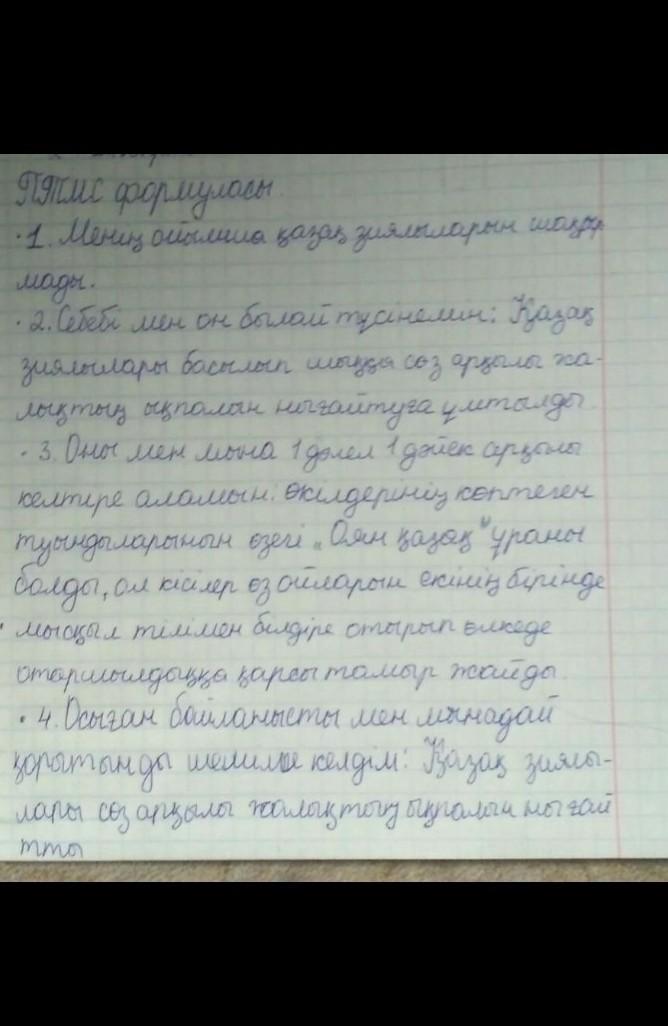 ПТМС формуласы.
· 1. Менің ойымша қазақ зиялыларын шақыр
мады.
· 2. Себебі мен он былай түсінемин: Қазақ
зиялылары басылып шыққа сөз арқылы ха-
лықтың ықпалын нығайтуға ұмтылды.
· 3. Оны мен мына 1 дәлел 1 дәйек арқылы
келтіре аламын: өкілдерінің көптеген
туындыларынын өзегі „Оян қазақ" ұраны
болды, ол кісілер өз ойларын екінің бірінде
· мысқыл тілімен білдіре отырып өлкеде
отаршылдыққа қарсы тамыр жайды.
· 4. Осыған байланысты мен мынадай
қорытынды шешімге келдім: Қазақ зиялы-
лары сөз арқылы халықтың ықпалын нығай
тты